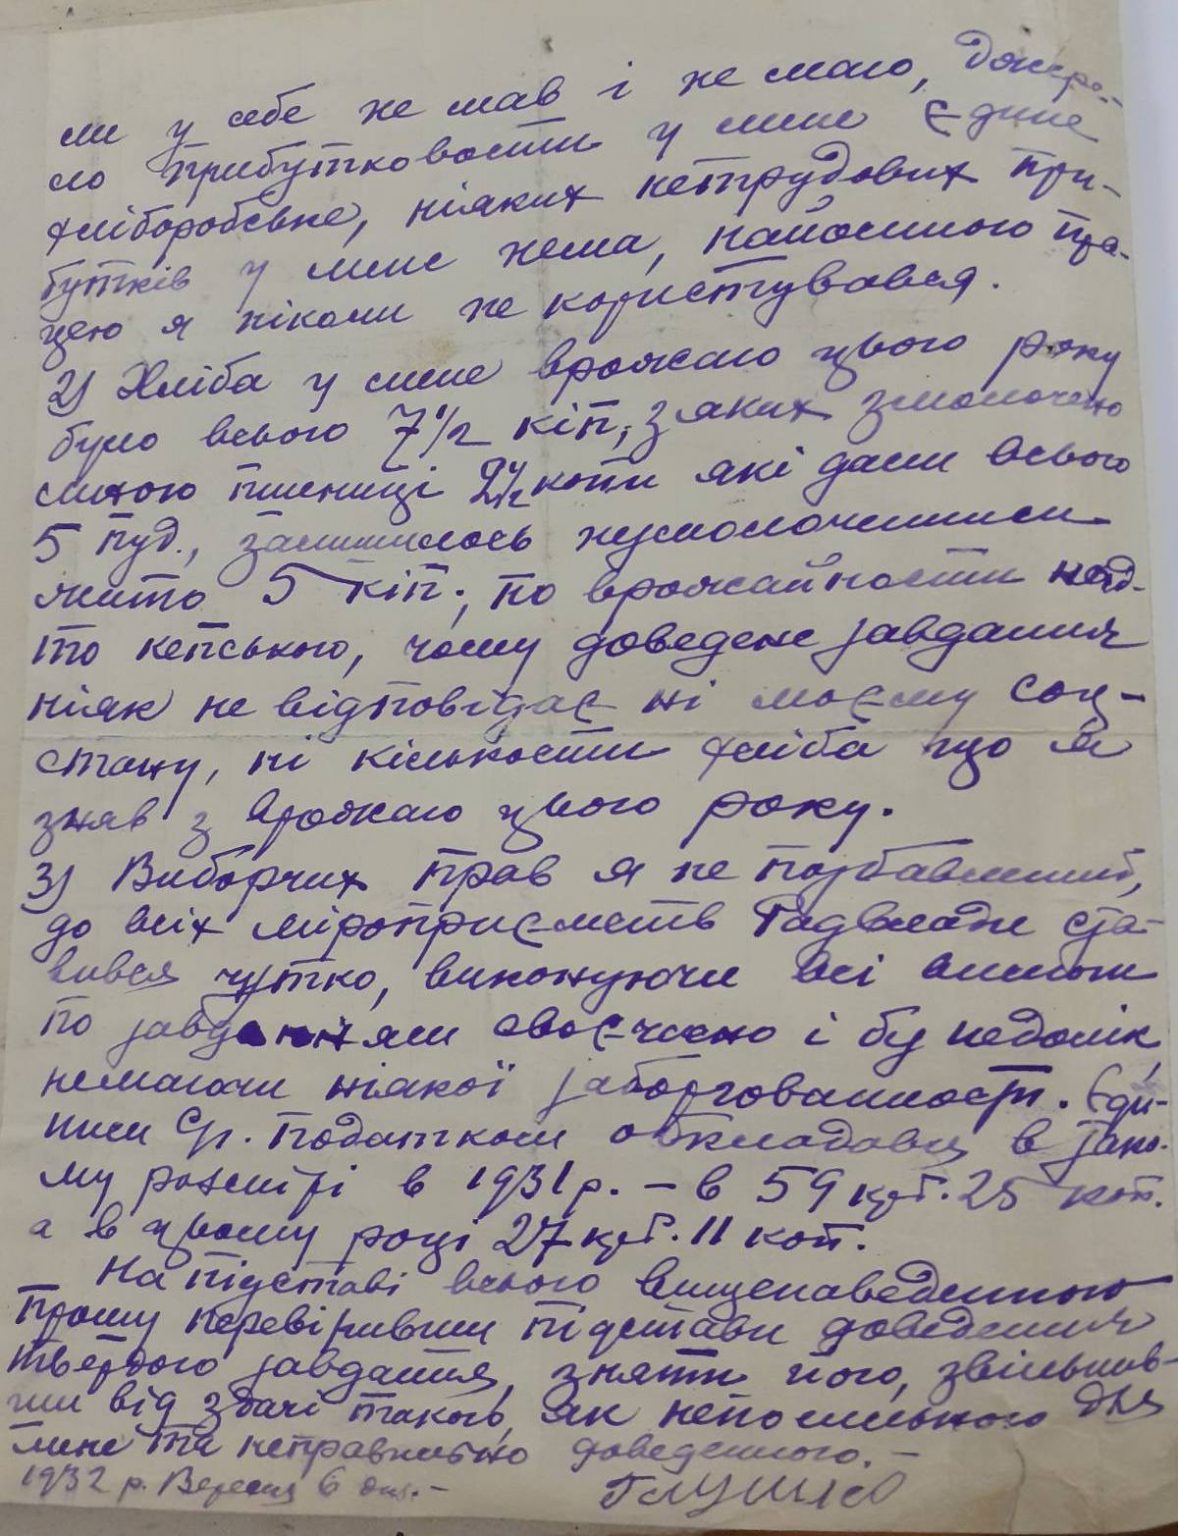 ми у себе не мав і не маю, джере-
ло прибутковости у мене єдине
хліборобське, ніяких нетрудових при-
бутків у мене нема, найомною пра-
цею я ніколи не користувався.
2) Хліба у мене врожаю цього року
було всього 7½ кіп, з яких змолочено
мною пшениці 2½ копи які дали всього
5 пуд., залишилось нузмолоченими
жито 5 кіп. по врожайности надто
то кепського, чому доведене завдання
ніяк не відповідає ні моєму соц-
стану, ні кількости хліба що я
зняв з врожаю цього року.
3) Виборчих прав я не позбавлений,
до всіх міроприємств Радвлади ста-
вився чутко, виконуючи всі вимоги
по завданням своєчасно і без недоїмк,
немаючи ніякої заборгованности. Єди-
ним с/г. податком обкладавсь в тако-
му розмірі в 1931 р. – в 59 крб. 25 коп.
а в цьому році 27 крб. 11 коп.
На підставі всього вищенаведенного
прошу перевіривши підстави доведення
твердого завдання, зняти його, звільнив-
ши від здачі такого, як непосильного для
мене та неправильно доведенного. –
1932 р. Вересня 6 дня. –